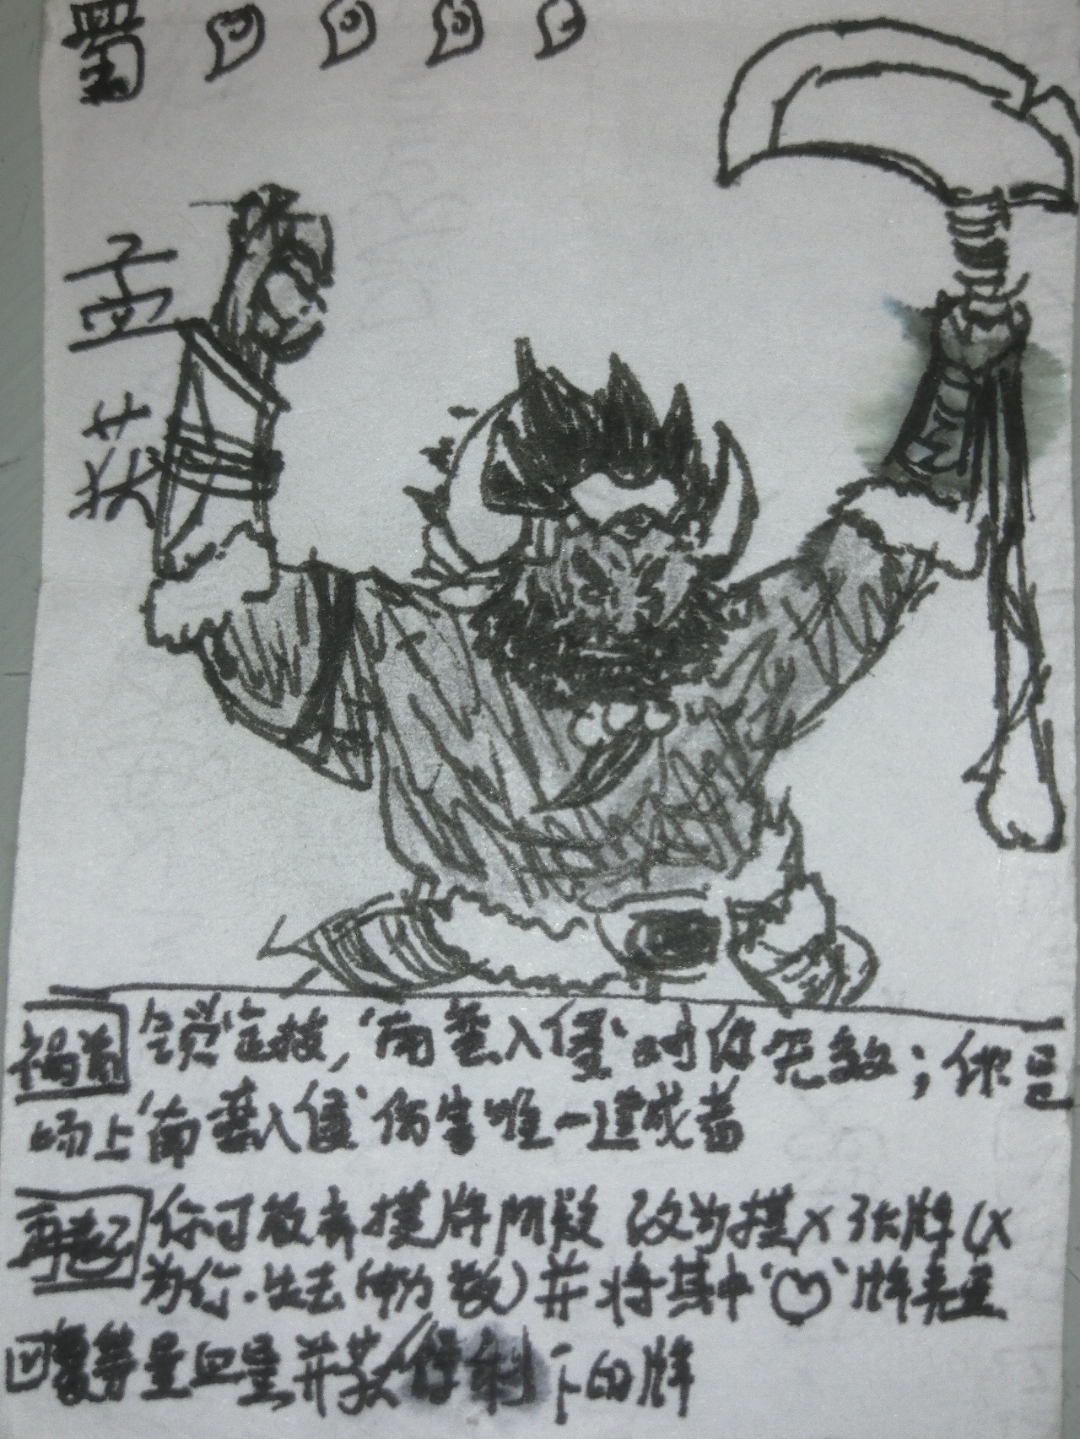 蜀
孟
获
祸首 锁定技，‘南蛮入侵’对你无效；你是
场上‘南蛮入侵’伤害唯一造成者
再起 你可放弃摸牌阶段 改为摸X张牌（X
为你失去体力数）并将其中‘♡’牌弃置
回覆等量血量并获得剩下的牌